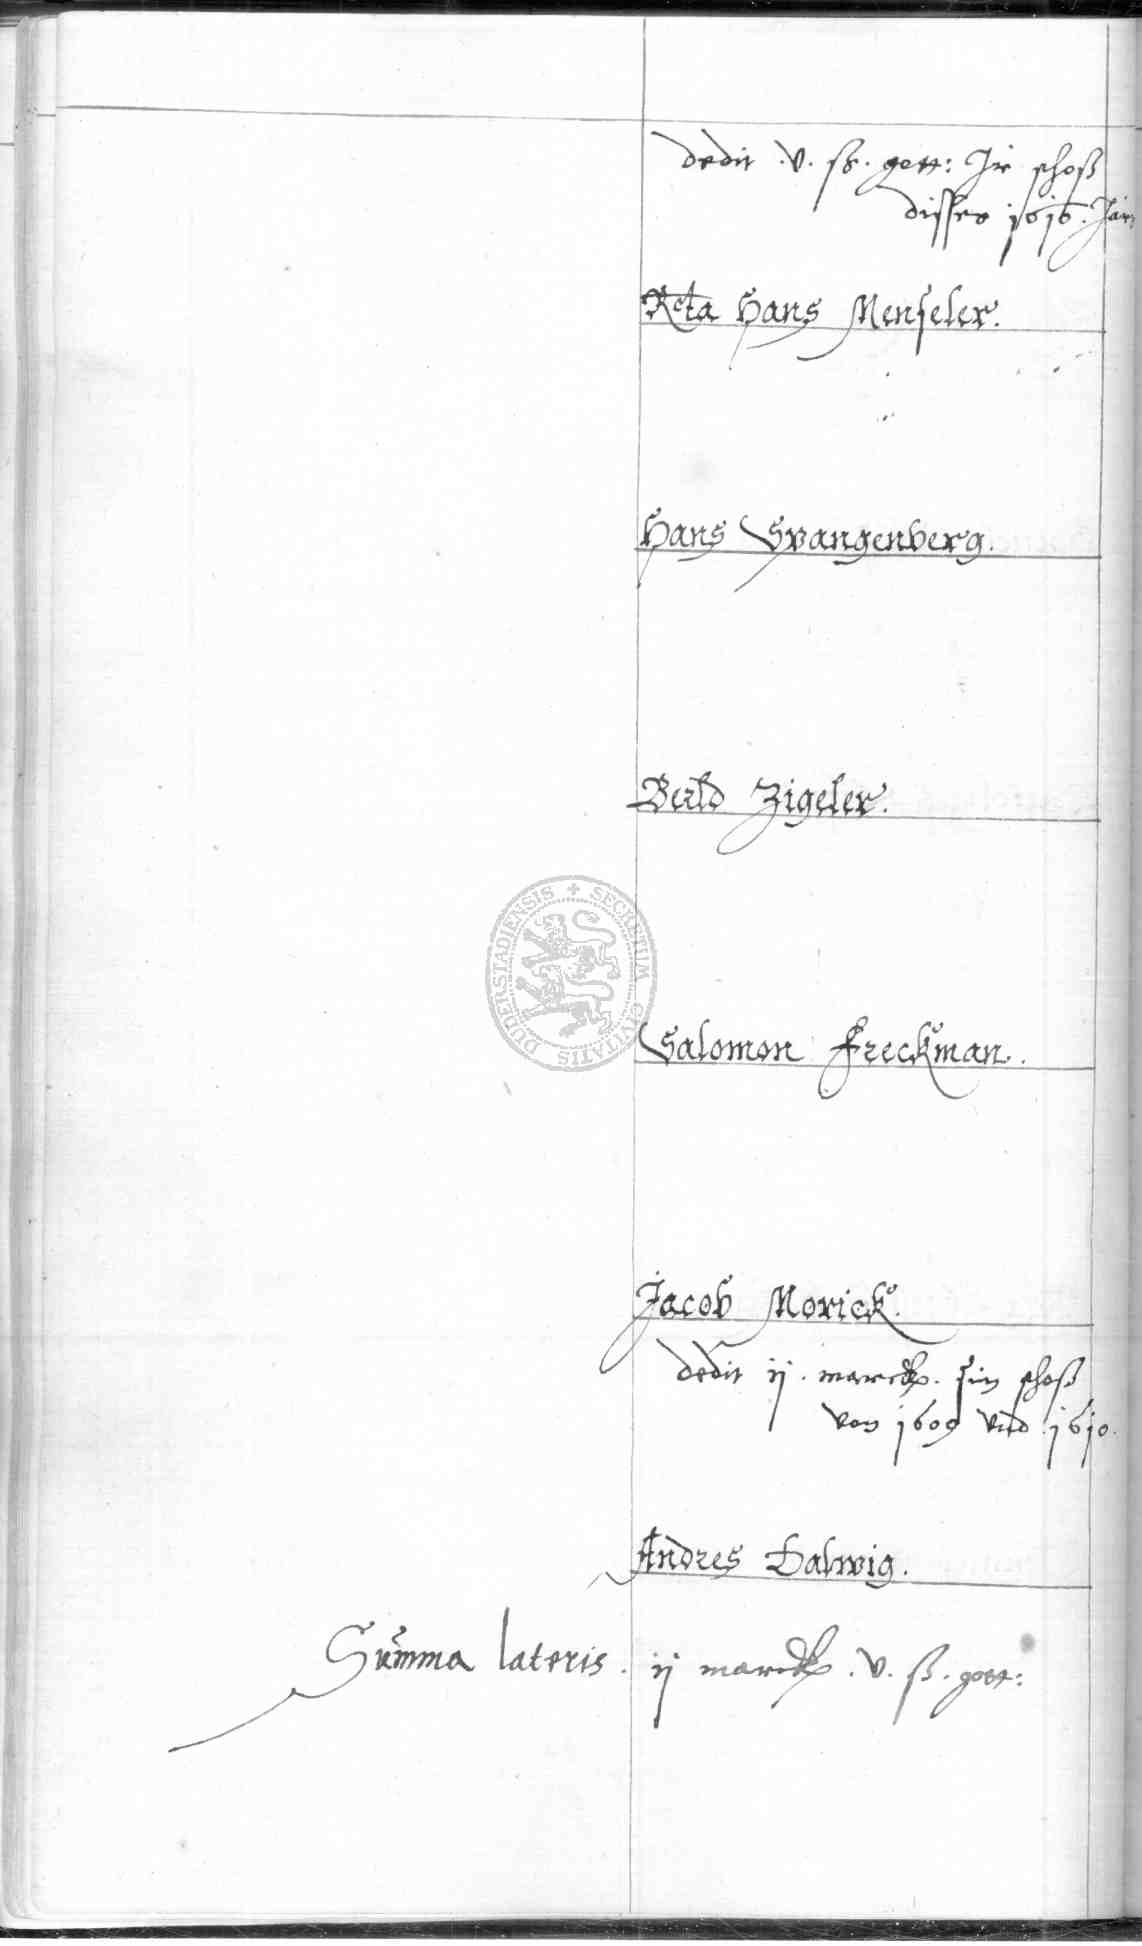 dedit .v. ß. gott: Ir schoß
disses 1616. Jars
Rcta Hans Menseler.
Hans Spangenberg.
Bertld Zigeler.
SECRETUM CIVITATIS DUDERSTADIENSIS
Salomon Freckman.
Jacob Morick.
dedit ij. marck. sin schoß
von 1609 vnd 1610.
Andres Dalwig.
Summa lateris. ij marck .v. ß. gott: